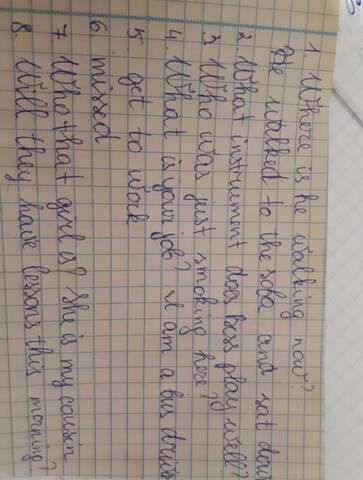 1. Where is he walking now?
He walked to the sofa and sat down
2. What instrument does bass play well?
3 Who was just smoking here?
4. What is your job? I am a bus driver
5 get to work
6 missed
7 Who that girl is? She is my cousin
8. Will they have lessons this morning?